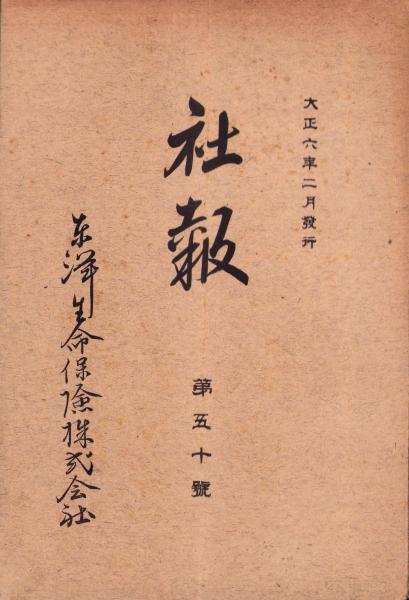 大正六年二月發行
社報
第五十號
东洋生命保險株式会社